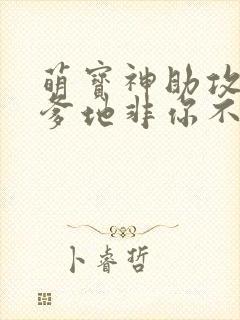 萌寳神助攻
爹地非你不
卜睿哲